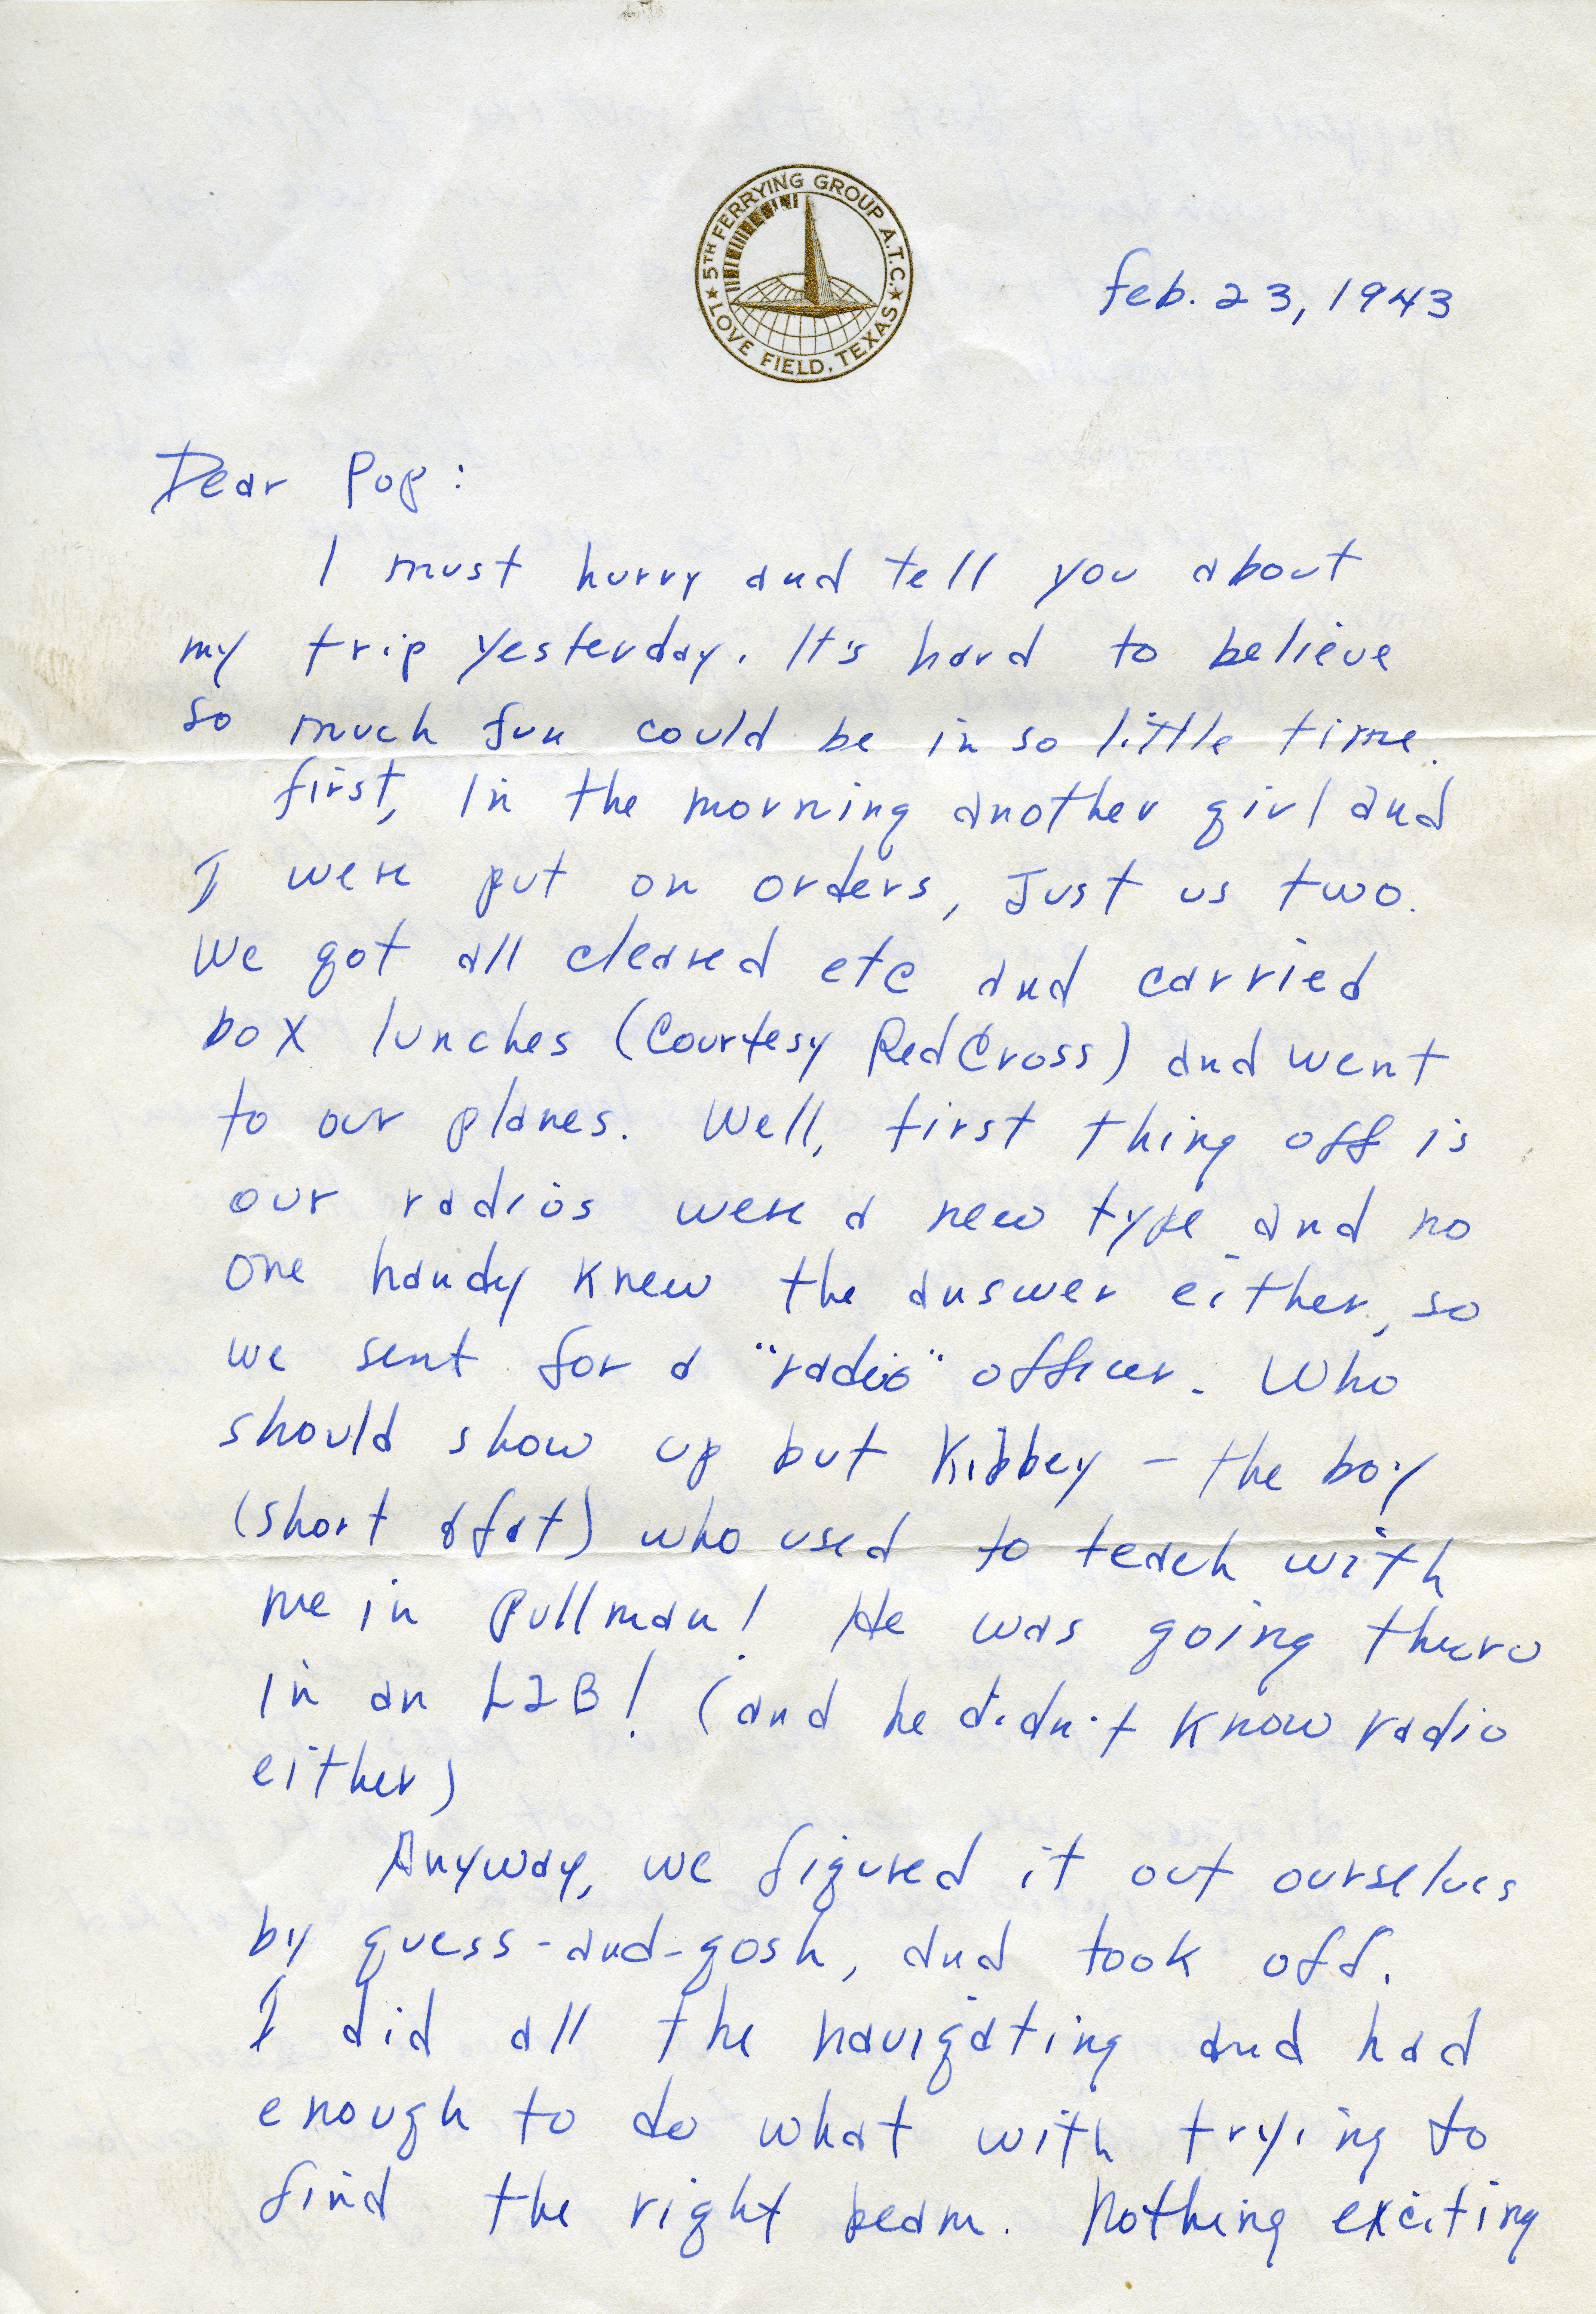 5TH FERRYING GROUP A.T.C.
★ LOVE FIELD, TEXAS ★
Feb. 23, 1943
Dear Pop:
I must hurry and tell you about
my trip yesterday. It's hard to believe
so much fun could be in so little time.
First, in the morning another girl and
I were put on orders, Just us two.
We got all cleared etc and carried
box lunches (Courtesy Red Cross) and went
to our planes. Well, first thing off is
our radios were a new type and no
one handy knew the answer either, so
we sent for a "radio" officer. Who
should show up but Kibbey - the boy
(short & fat) who used to teach with
me in Pullman! He was going thuro
in an L2B! (and he didn't know radio
either)
Anyway, we figured it out ourselves
by guess-and-gosh, and took off.
I did all the navigating and had
enough to do what with trying to
find the right beam. Nothing exciting